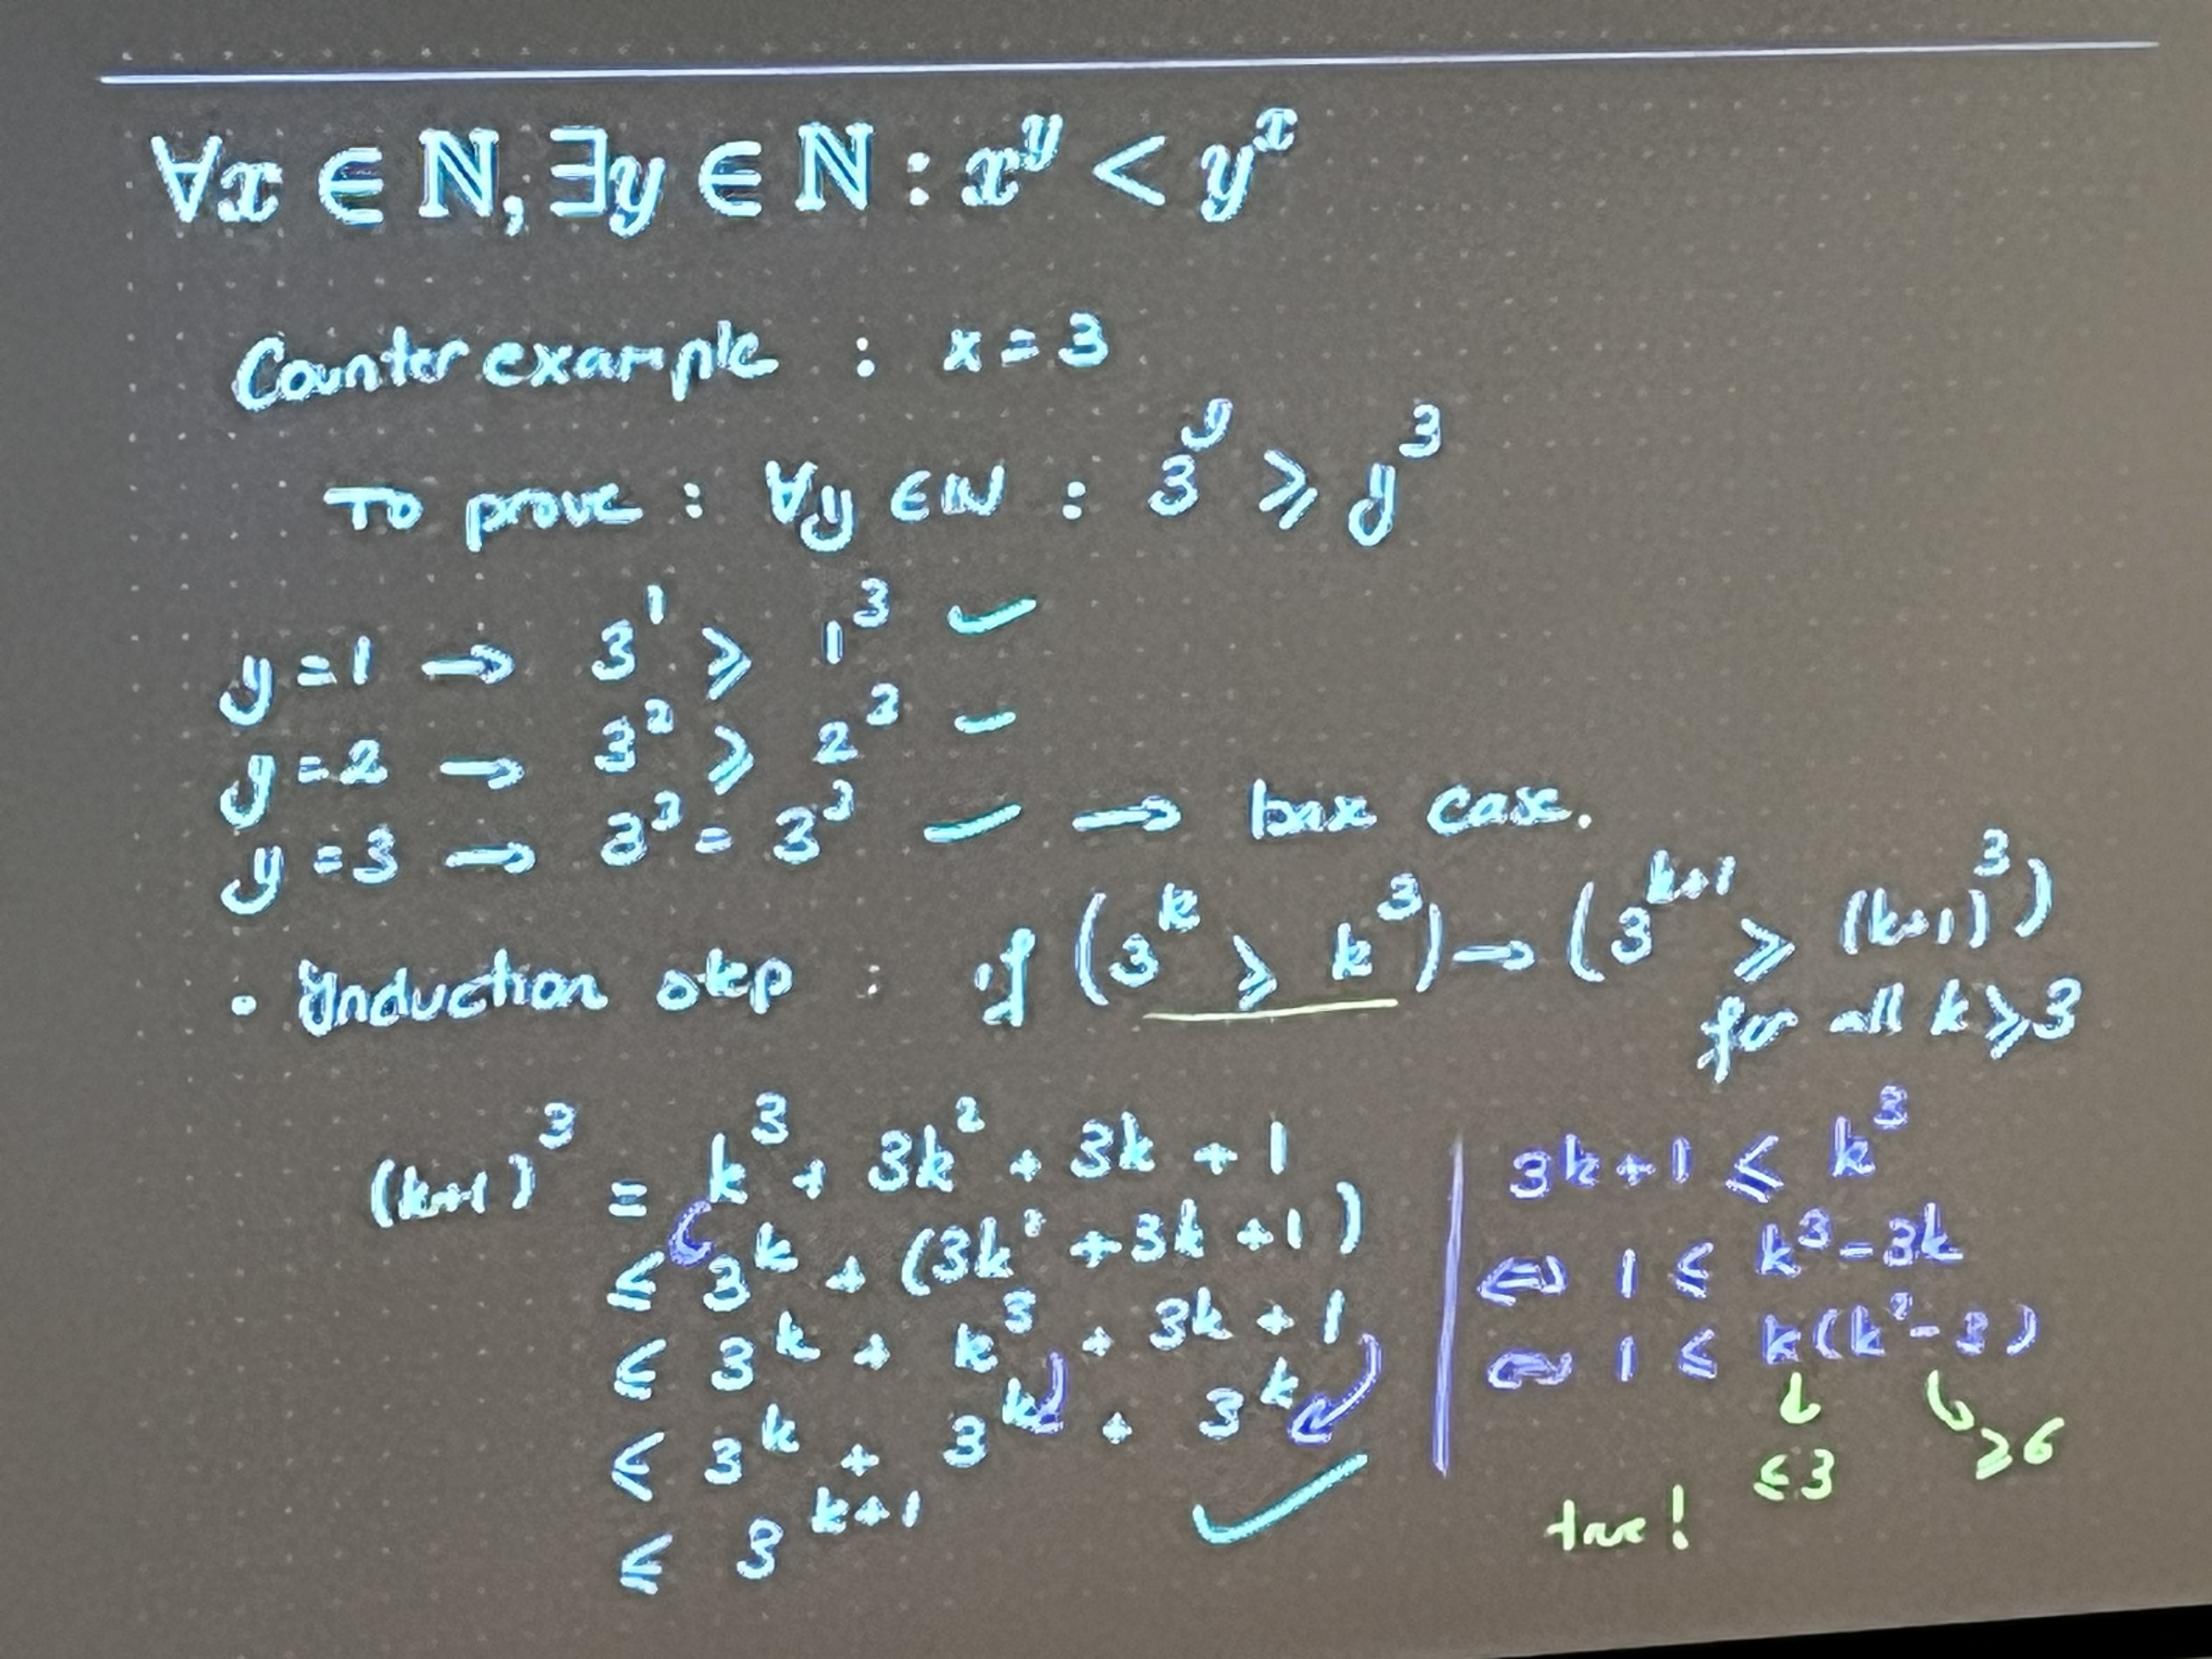 ∀x ∈ ℕ, ∃y ∈ ℕ : x^y < y^x
Counter example : x = 3
To prove : ∀y ∈ ℕ : 3^y ≥ y^3
y = 1 → 3^1 ≥ 1^3 ✓
y = 2 → 3^2 ≥ 2^3 ✓
y = 3 → 3^3 = 3^3 ✓ → base case.
• Induction step : if (3^k ≥ k^3) → (3^{k+1} ≥ (k+1)^3)
for all k ≥ 3
(k+1)^3 = k^3 + 3k^2 + 3k + 1
≤ 3^k + (3k^2 + 3k + 1)
≤ 3^k + k^3 + 3k + 1
≤ 3^k + 3^k + 3^k
≤ 3^{k+1} ✓
3k + 1 ≤ k^3
⇔ 1 ≤ k^3 - 3k
⇔ 1 ≤ k(k^2 - 3)
↓ ↳ ≥ 6
≤ 3
true!